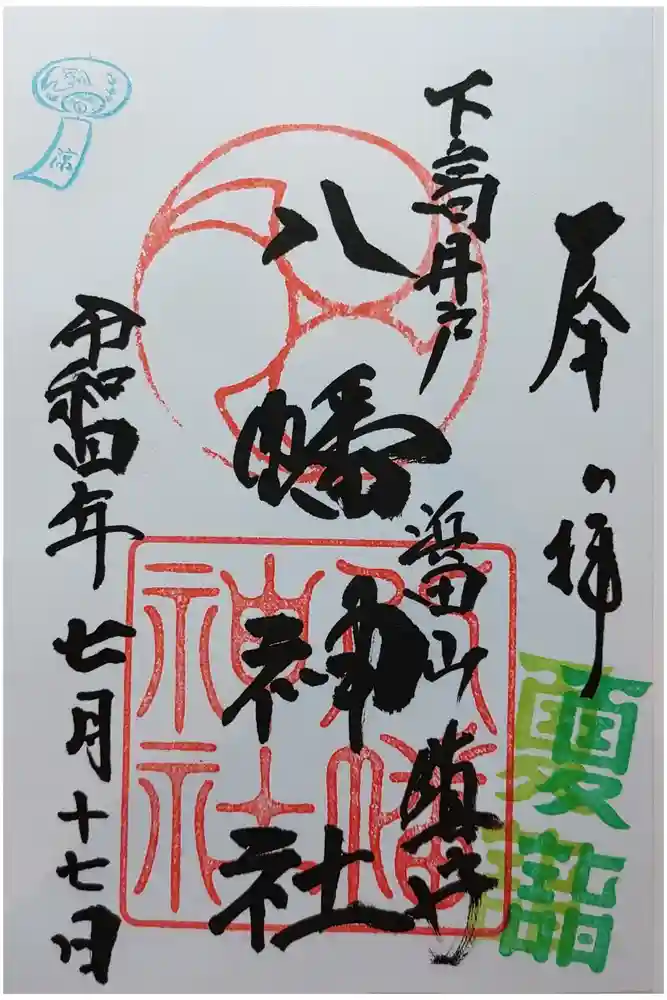 奉拝
夏詣
下高井戸
浜田山鎮守
八幡神社
令和四年七月十七日